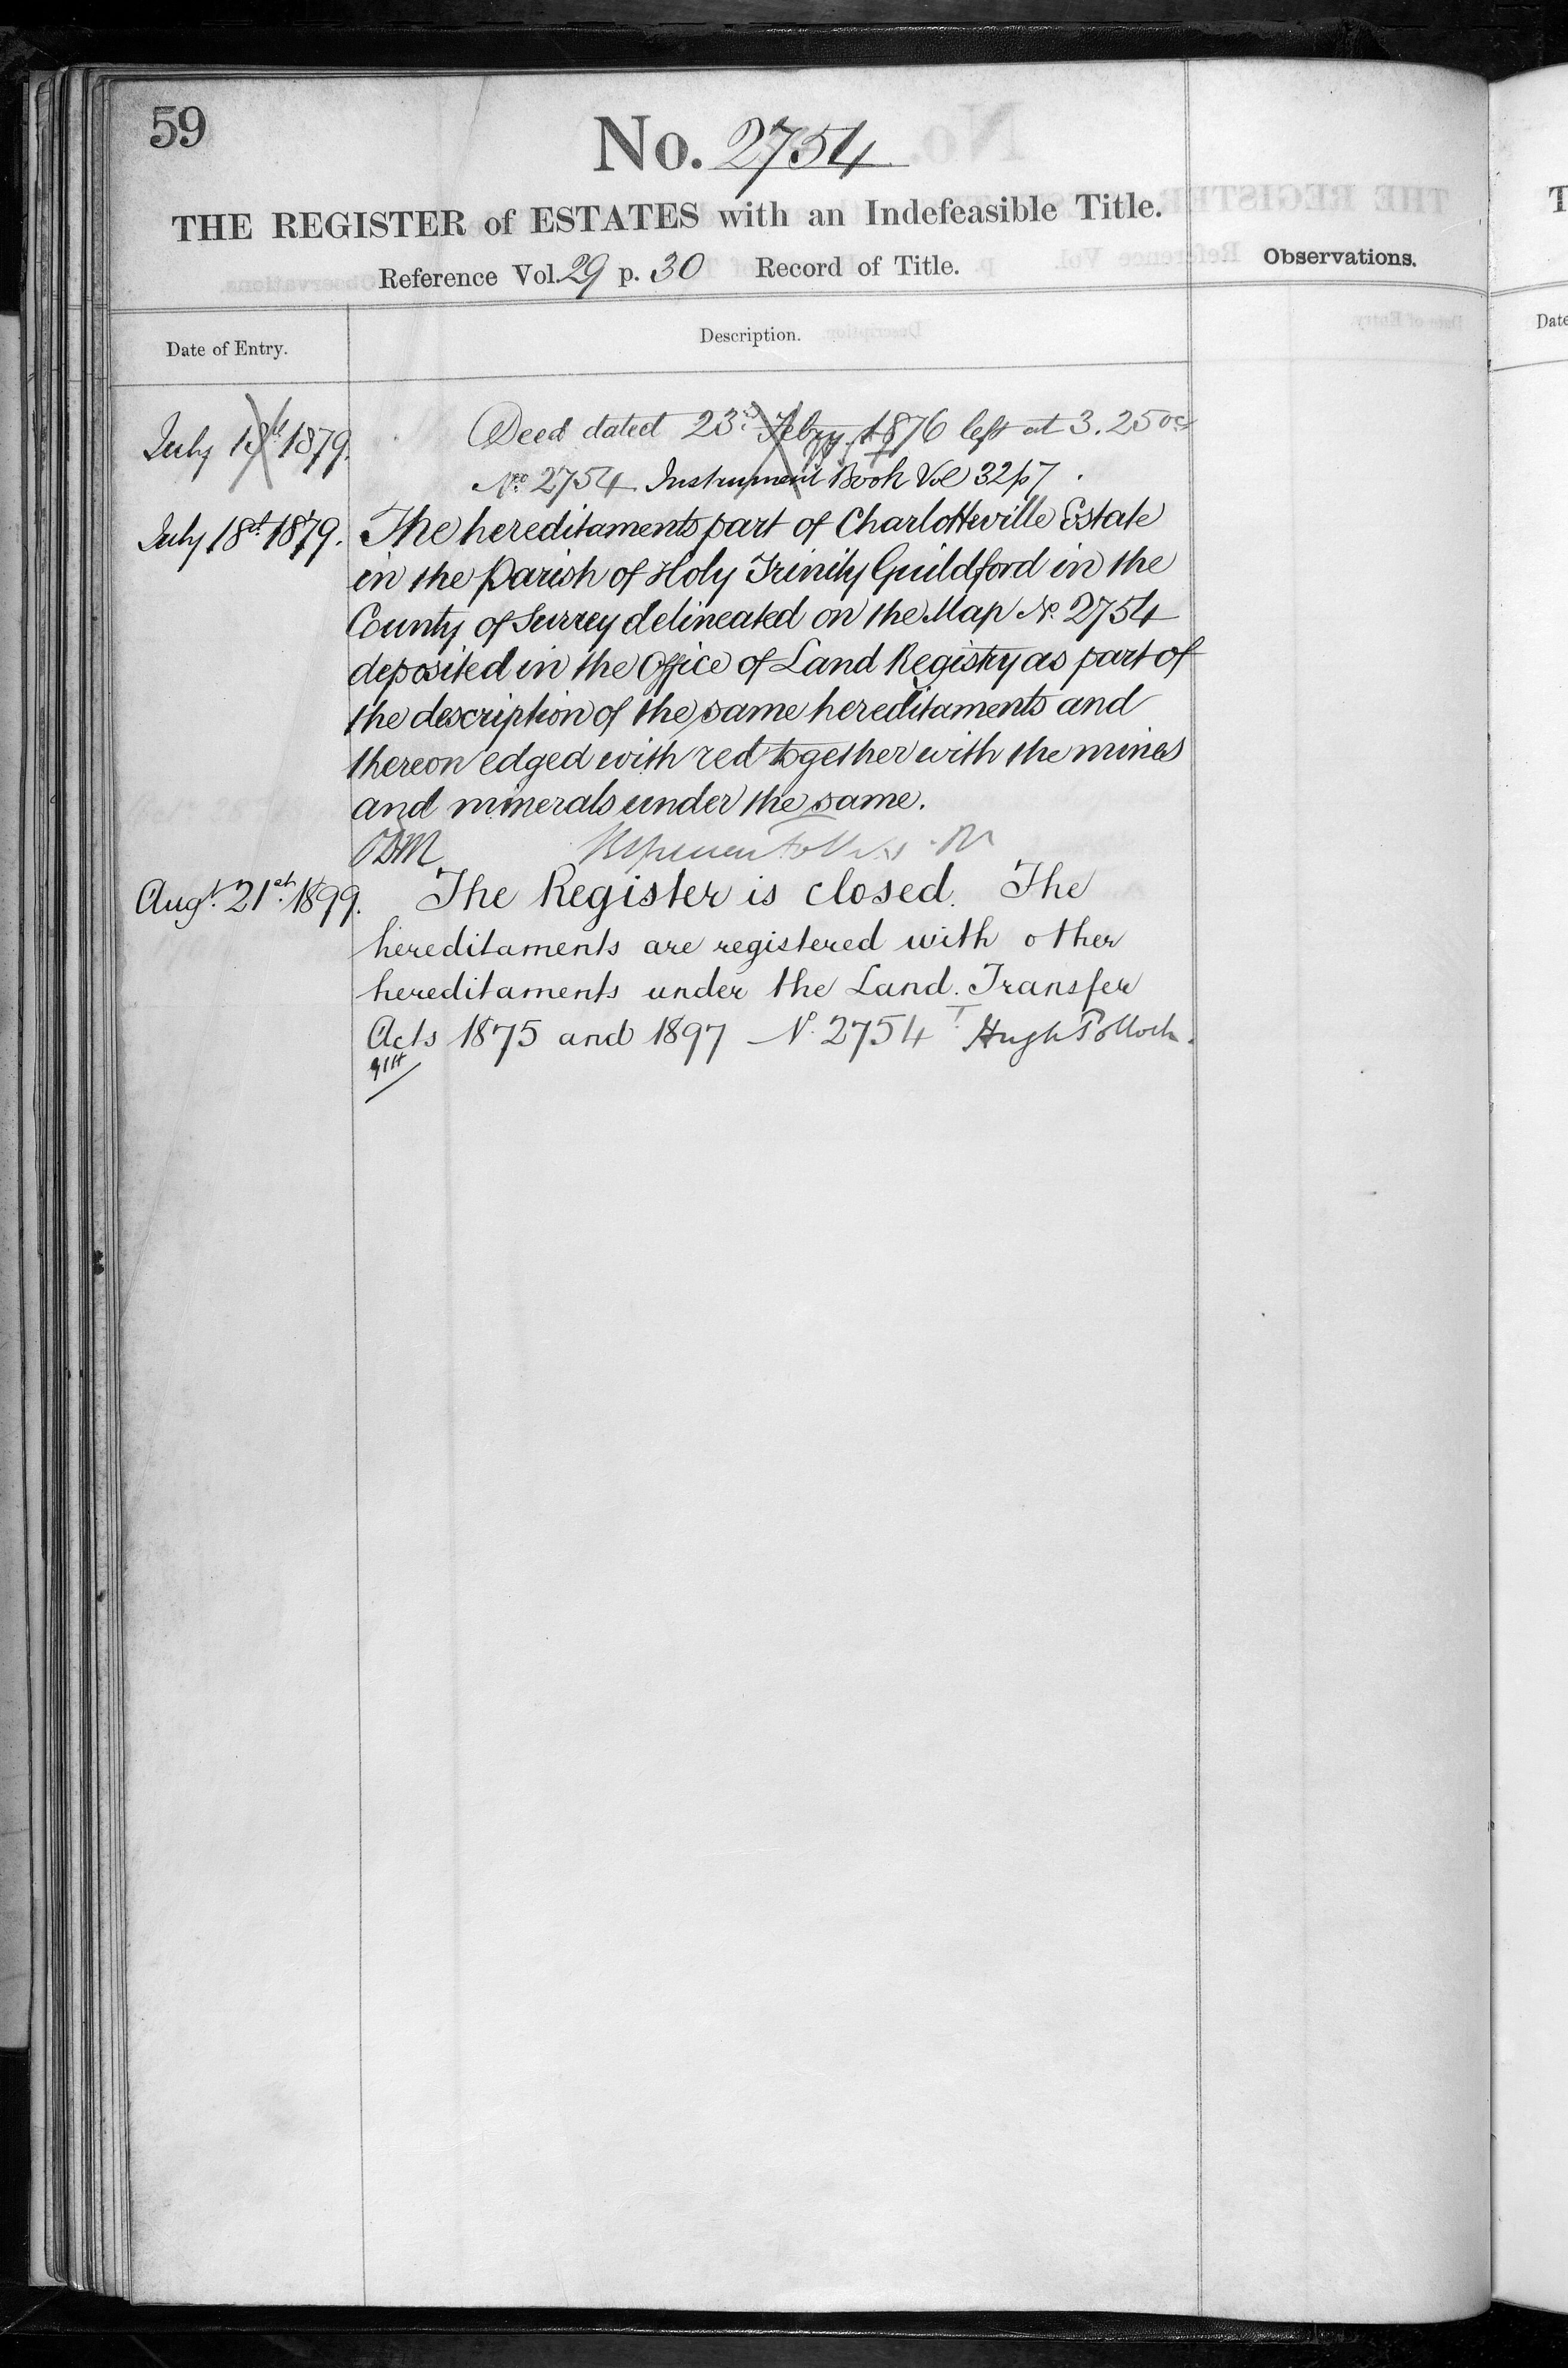 59
No. 2754
THE REGISTER of ESTATES with an Indefeasible Title.
Reference Vol. 29 p. 30 Record of Title.
Observations.
Date of Entry.
Description.
July 1879.
Deed dated 23rd Febry 1876 left at 3.25 oc
No 2754 Instrument Book Vol 32 p 7.
July 18th 1879.
The hereditaments part of Charlotteville Estate
in the Parish of Holy Trinity Guildford in the
County of Surrey delineated on the Map No. 2754
deposited in the Office of Land Registry as part of
the description of the same hereditaments and
thereon edged with red together with the mines
and minerals under the same.
Augt. 21st 1899.
The Register is closed. The
hereditaments are registered with other
hereditaments under the Land. Transfer
Acts 1875 and 1897 No. 2754 Hugh Pollock.
Date